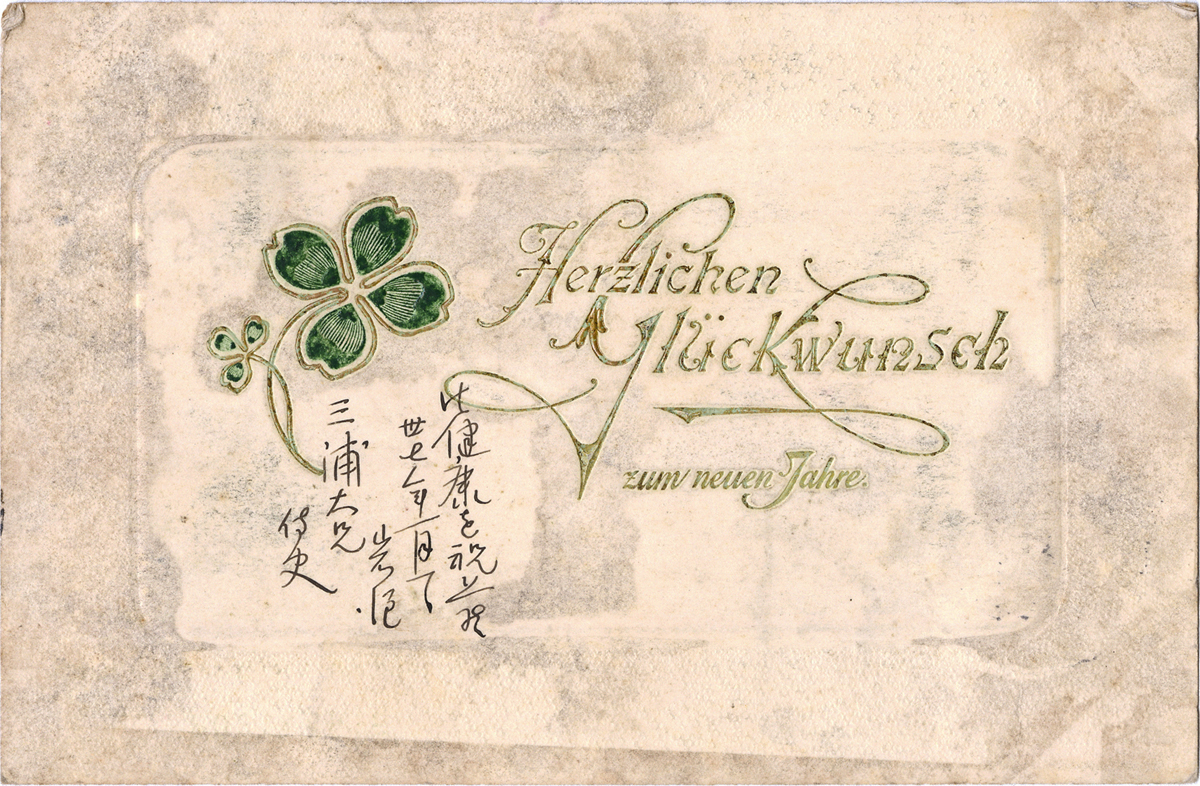 Herzlichen
Glückwunsch
zum neuen Jahre.
健康を祝上候
丗七年一月
三浦大兄
侍史